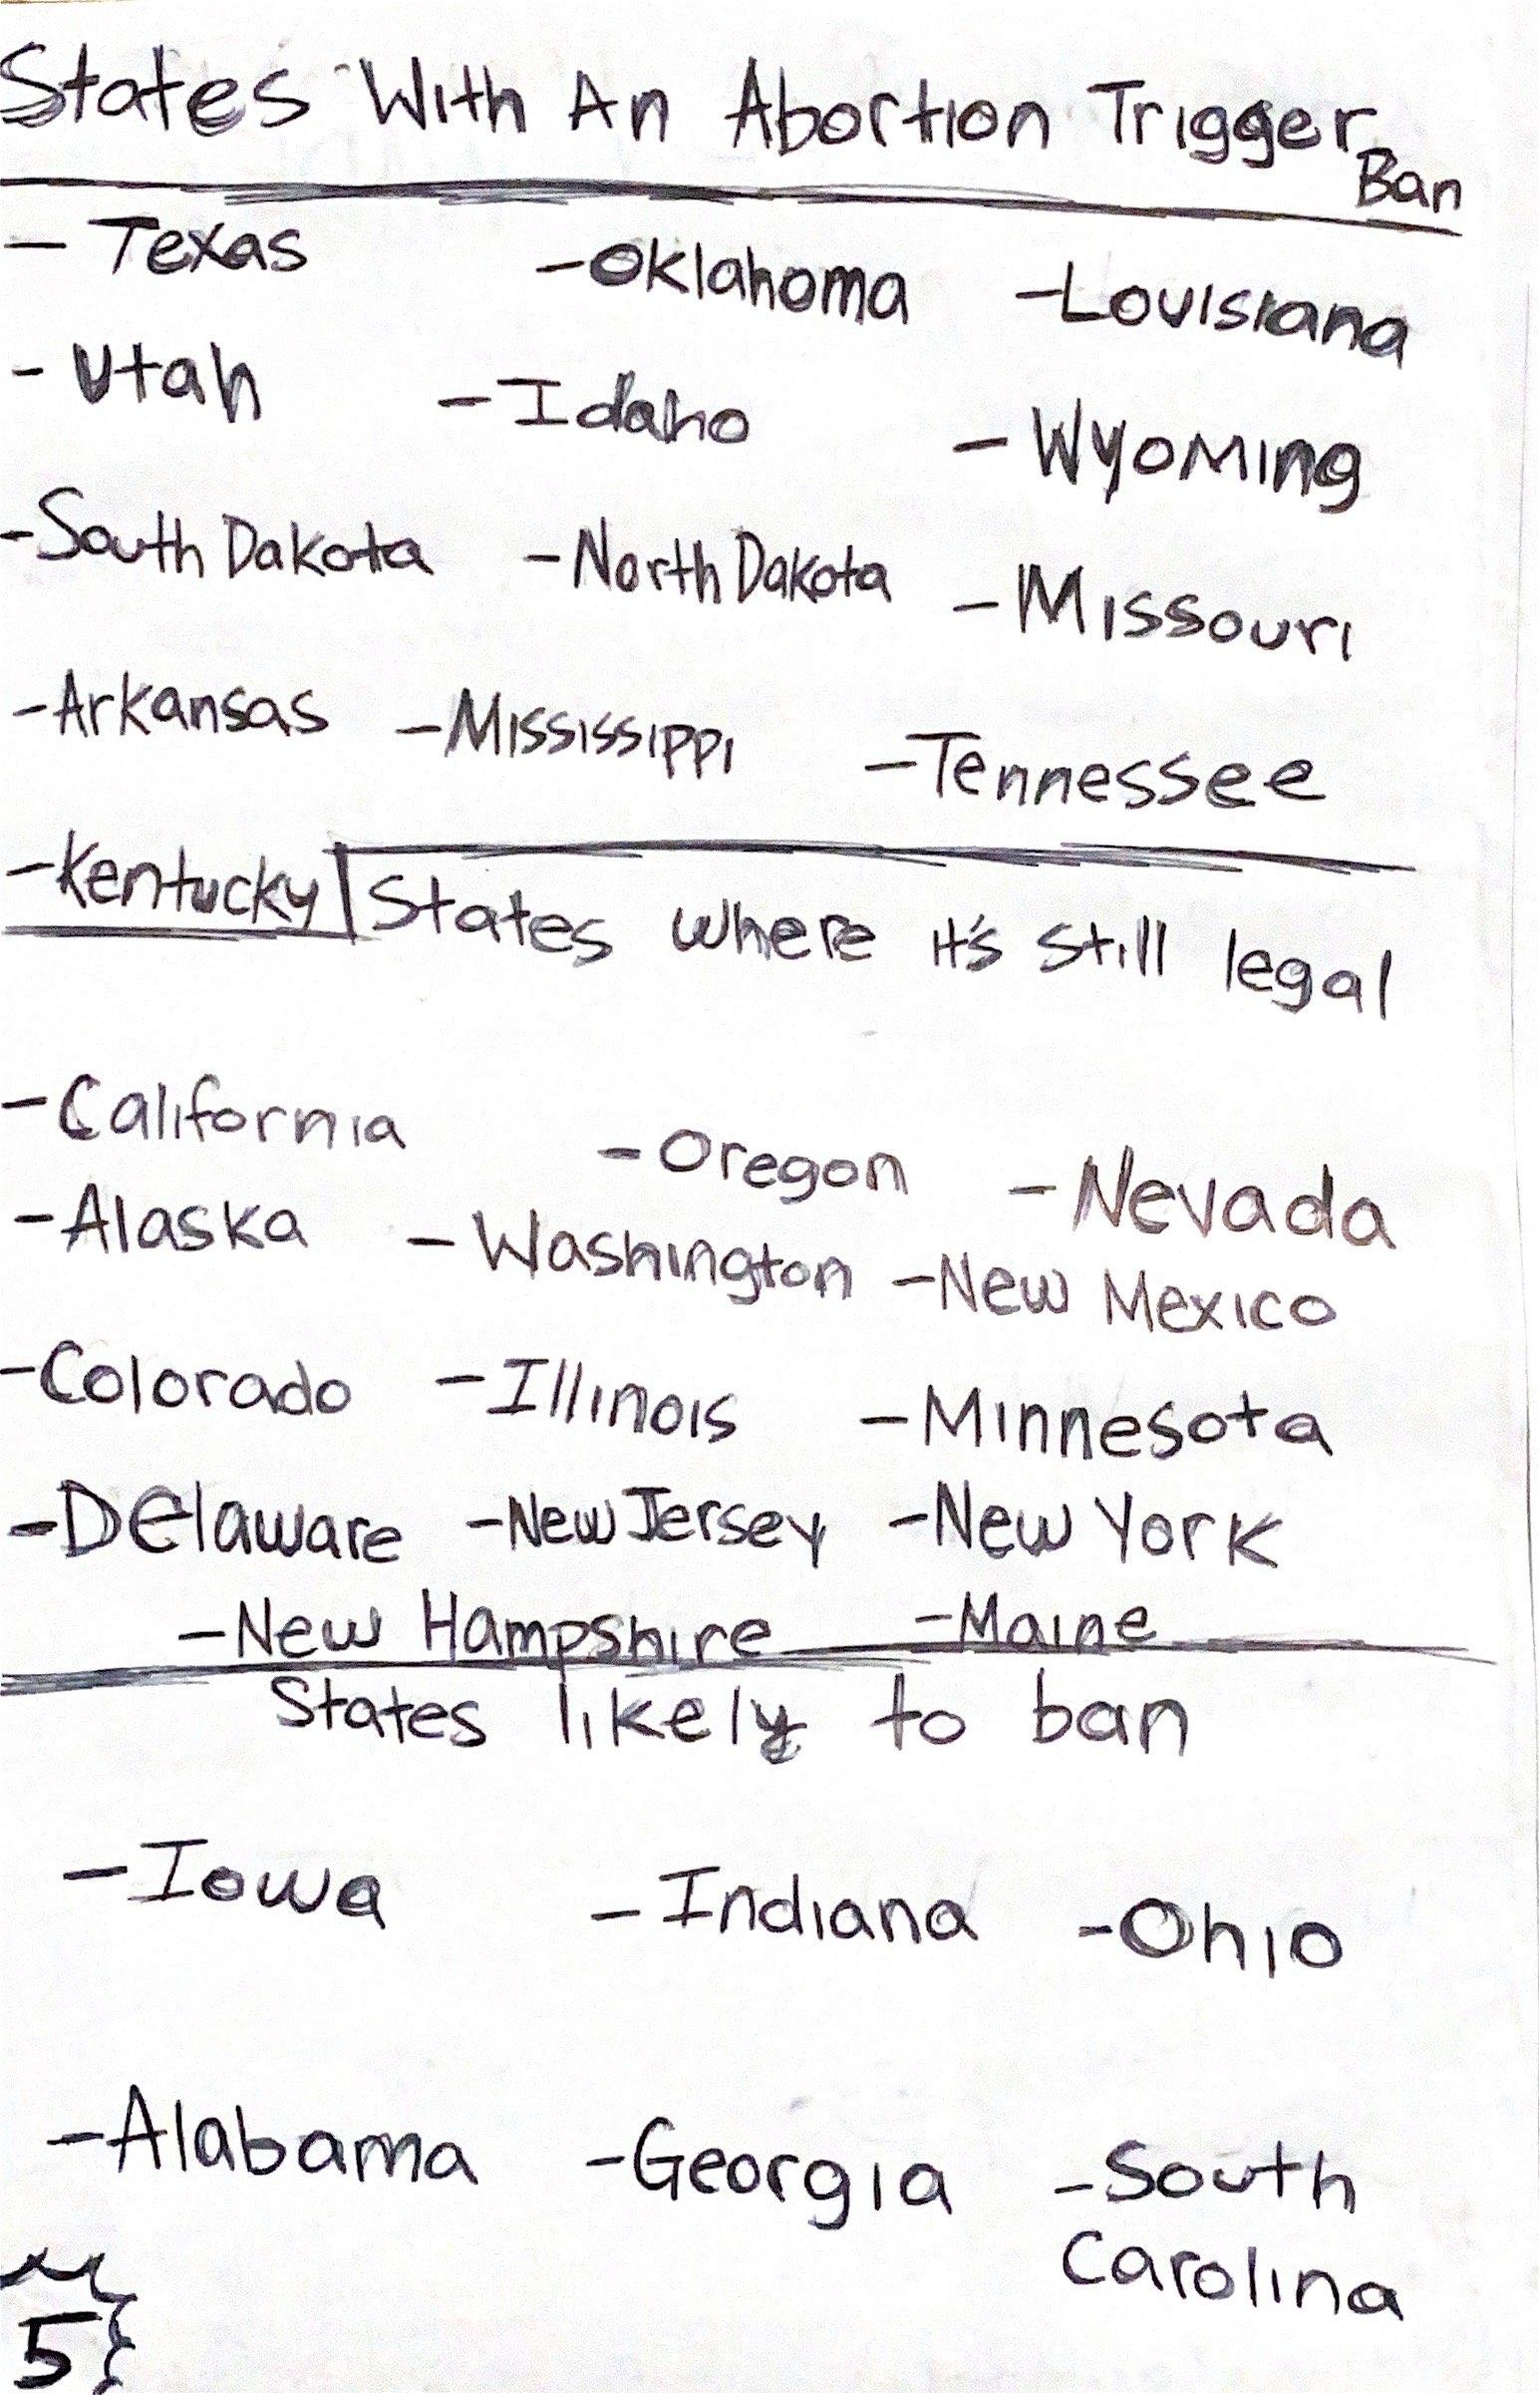 States With An Abortion Trigger Ban
- Texas -Oklahoma -Louisiana
- Utah - Idaho - Wyoming
-South Dakota -North Dakota -Missouri
-Arkansas -Mississippi -Tennessee
-Kentucky
States where it's still legal
-California -Oregon -Nevada
-Alaska -Washington -New Mexico
-Colorado -Illinois -Minnesota
-Delaware -New Jersey -New York
-New Hampshire -Maine
States likely to ban
-Iowa -Indiana -Ohio
-Alabama -Georgia -South
Carolina
5